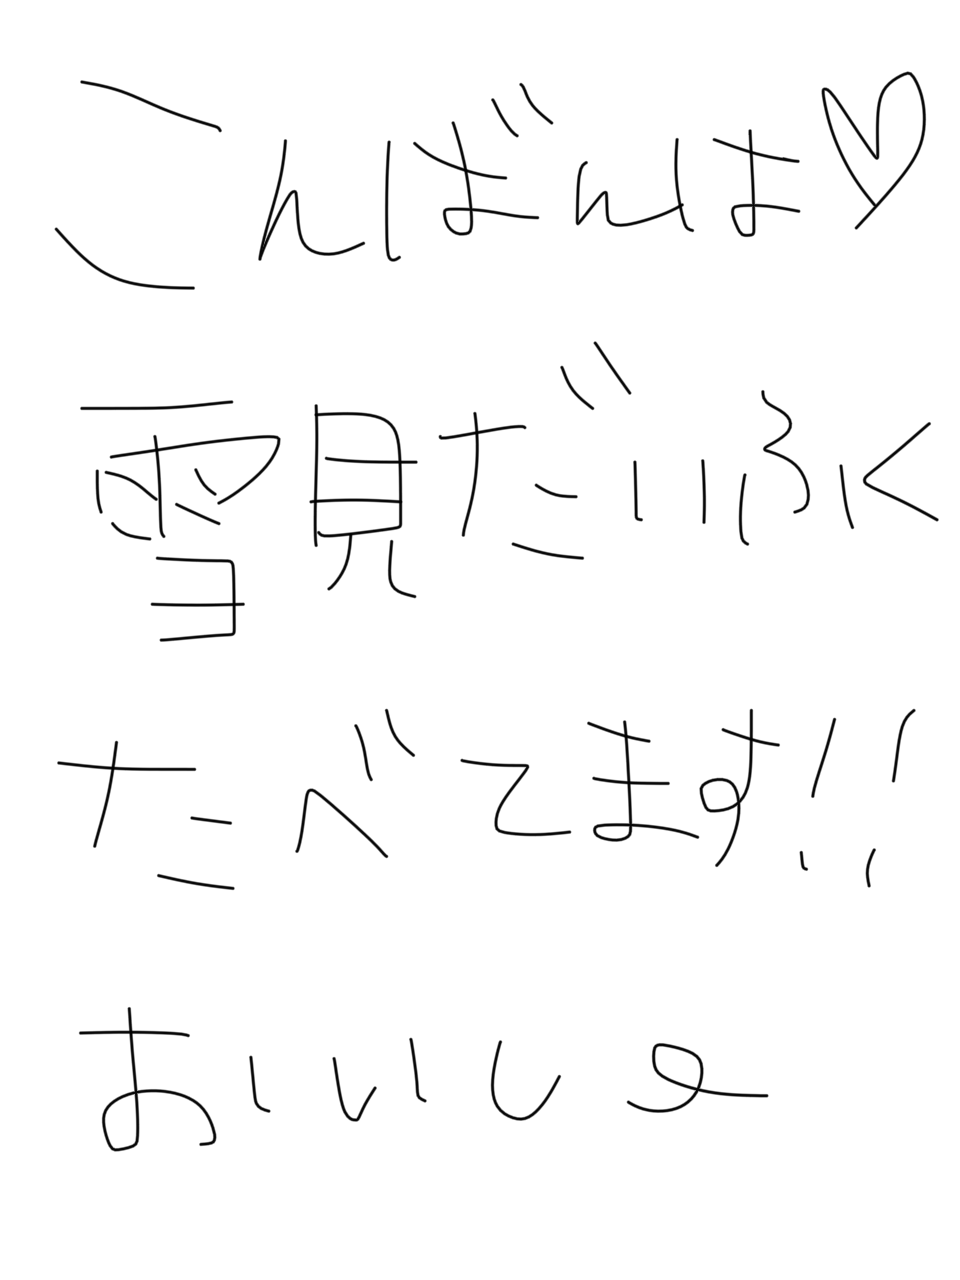 こんばんは♡
雪見だいふく
たべてます!!
おいしい〜